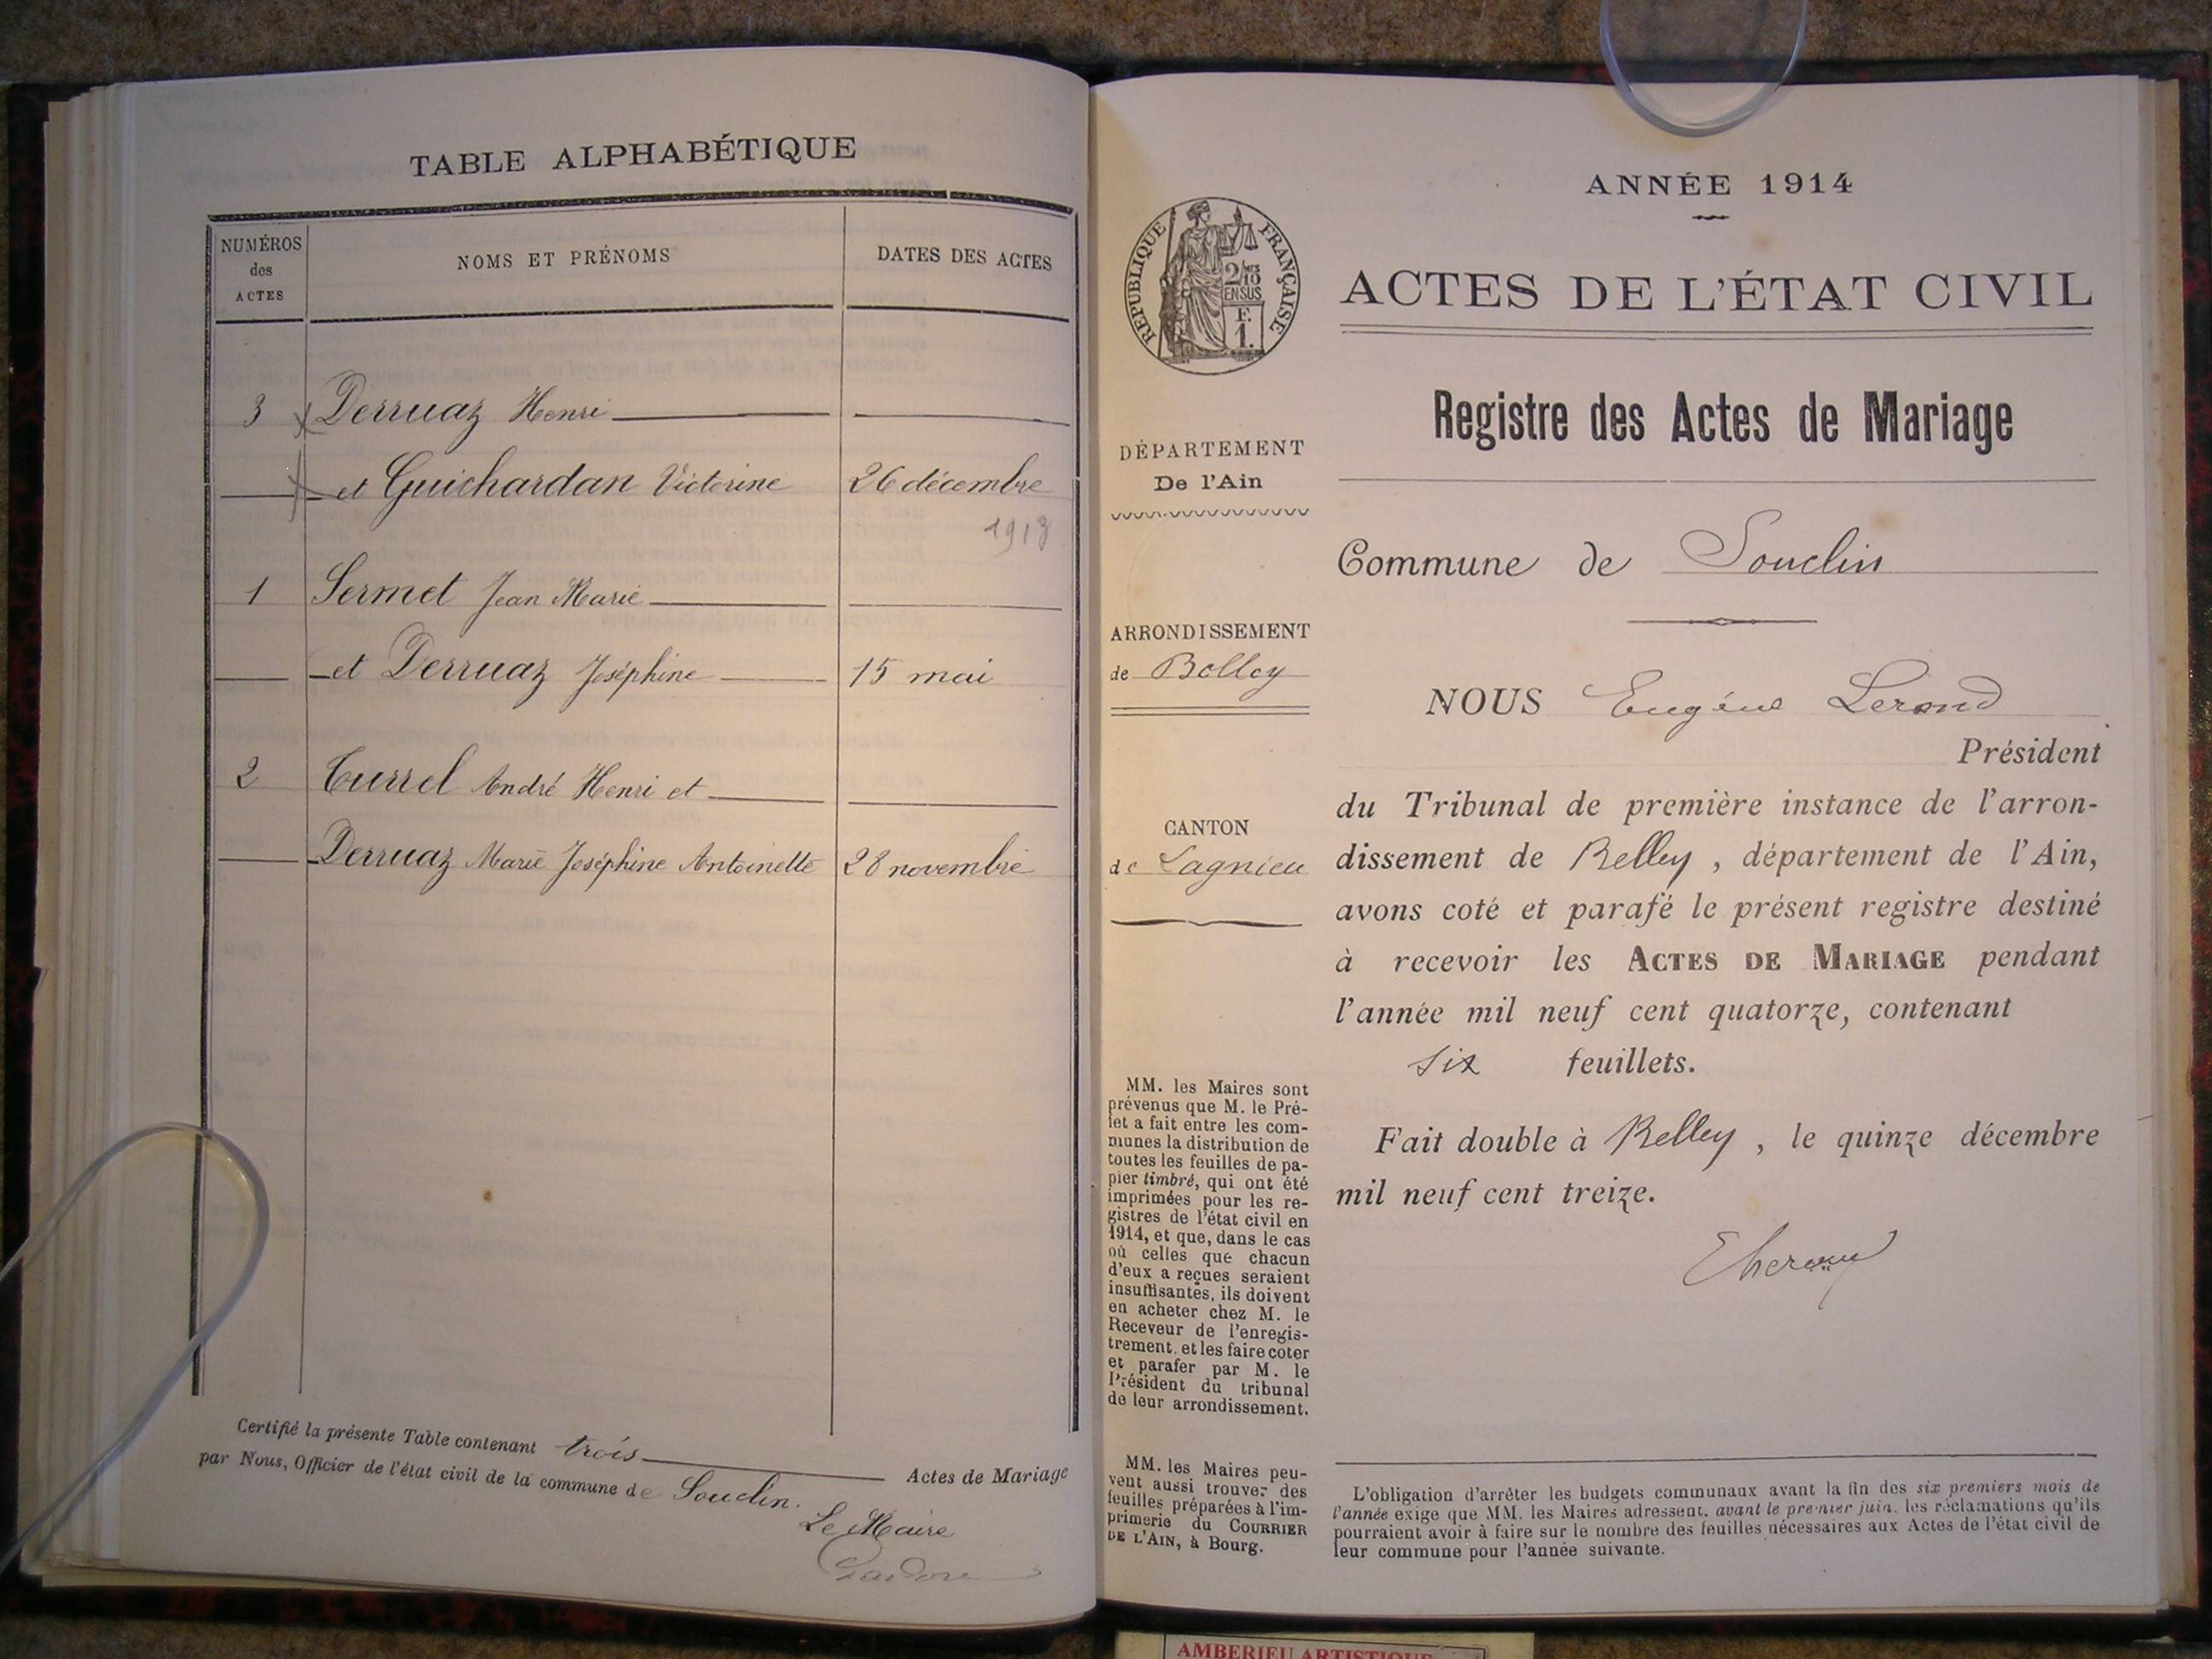 TABLE ALPHABÉTIQUE
NUMÉROS
des
ACTES
NOMS ET PRÉNOMS
DATES DES ACTES
3 Derruaz Henri
et Guichardan Victorine 26 décembre
1913
1 Sermet Jean Marie
et Derruaz Joséphine 15 mai
2 Currel André Henri et
Derruaz Marie Joséphine Antoinette 28 novembre
Certifié la présente Table contenant trois Actes de Mariage
par Nous, Officier de l'état civil de la commune de Souclin.
Le Maire
RÉPUBLIQUE FRANÇAISE
2/10
EN SUS
F.
1.
DÉPARTEMENT
De l'Ain
ARRONDISSEMENT
de Belley
CANTON
de Lagnieu
MM. les Maires sont
prévenus que M. le Pré-
fet a fait entre les com-
munes la distribution de
toutes les feuilles de pa-
pier timbré, qui ont été
imprimées pour les re-
gistres de l'état civil en
1914, et que, dans le cas
où celles que chacun
d'eux a reçues seraient
insuffisantes, ils doivent
en acheter chez M. le
Receveur de l'enregis-
trement, et les faire coter
et parafer par M. le
Président du tribunal
de leur arrondissement.
MM. les Maires peu-
vent aussi trouver des
feuilles préparées à l'im-
primerie du COURRIER
DE L'AIN, à Bourg.
ANNÉE 1914
ACTES DE L'ÉTAT CIVIL
Registre des Actes de Mariage
Commune de Souclin
NOUS Eugène Lerond
Président
du Tribunal de première instance de l'arron-
dissement de Belley, département de l'Ain,
avons coté et parafé le présent registre destiné
à recevoir les ACTES DE MARIAGE pendant
l'année mil neuf cent quatorze, contenant
six feuillets.
Fait double à Belley, le quinze décembre
mil neuf cent treize.
L'obligation d'arrêter les budgets communaux avant la fin des six premiers mois de
l'année exige que MM. les Maires adressent, avant le premier juin, les réclamations qu'ils
pourraient avoir à faire sur le nombre des feuilles nécessaires aux Actes de l'état civil de
leur commune pour l'année suivante.
AMBERIEU ARTISTIQUE